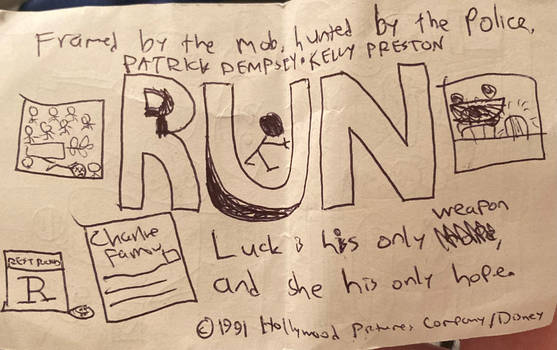 Framed by the mob, hunted by the Police,
PATRICK DEMPSEY • KELLY PRESTON
RUN
Charlie
Farrow
R
Luck is his only weapon,
and she his only hope.
© 1991 Hollywood Pictures Company/Disney